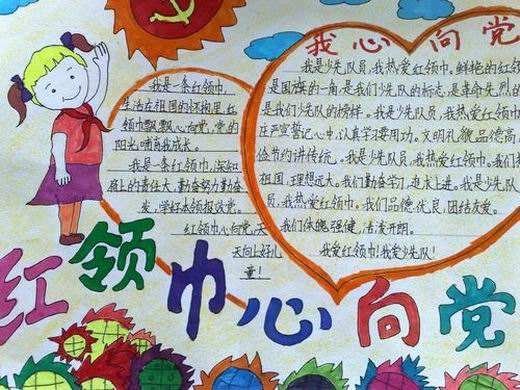 我心向党
我是一条红领巾,
生活在祖国的怀抱里,红
领巾飘飘心向党,党的
阳光哺育我成长。
我是一条红领巾,深知
肩上的责任大,勤奋努力勤奋
发,学好本领报效党。
红领巾心向党,天
天向上好儿
童!
我是少先队员,我热爱红领巾。鲜艳的红领
是国旗的一角,是我们少先队的标志,是革命先烈的
是我们少先队的榜样。我是少先队员,我热爱红领巾
庄严宣誓记心中,认真学习要用功。文明礼貌品德高
俭节约讲传统。我是少先队员,我热爱红领巾。我们
祖国,理想远大。我们勤奋学习,追求上进。我是少先队
员,我热爱红领巾。我们品德优良,团结友爱。
我们体魄强健,活泼开朗。
我爱红领巾!我爱少先队!
红领巾心向党